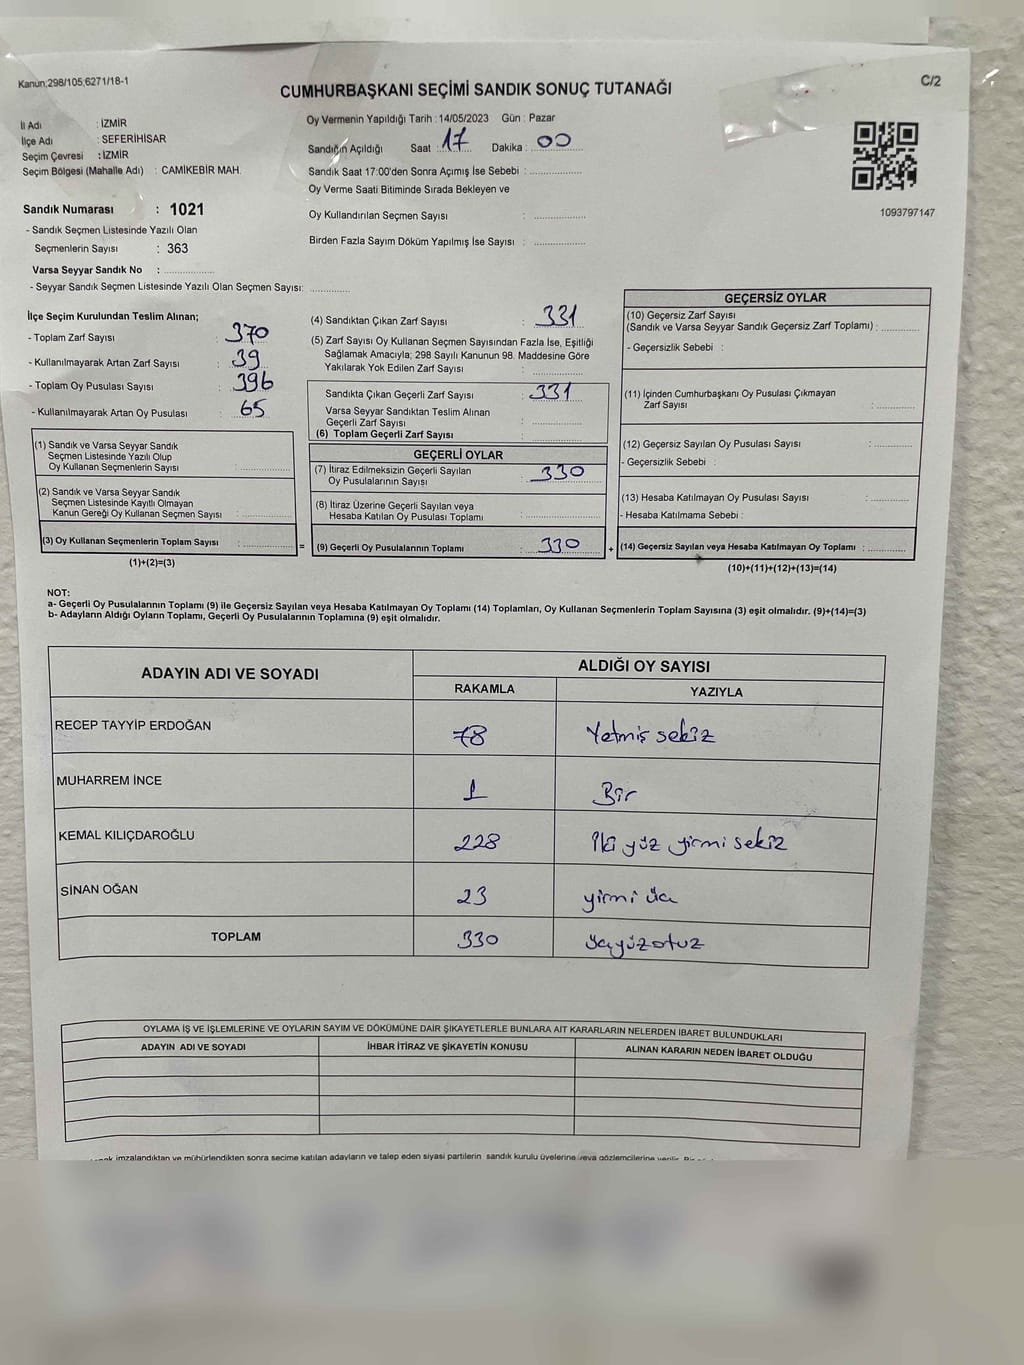 Kanun;298/105;6271/18-1
C/2
CUMHURBAŞKANI SEÇİMİ SANDIK SONUÇ TUTANAĞI
İl Adı : İZMİR
İlçe Adı : SEFERİHİSAR
Seçim Çevresi : İZMİR
Seçim Bölgesi (Mahalle Adı) : CAMİKEBİR MAH.
Sandık Numarası : 1021
- Sandık Seçmen Listesinde Yazılı Olan
Seçmenlerin Sayısı : 363
Varsa Seyyar Sandık No : ................
- Seyyar Sandık Seçmen Listesinde Yazılı Olan Seçmen Sayısı: ............
Oy Vermenin Yapıldığı Tarih : 14/05/2023 Gün : Pazar
Sandığın Açıldığı Saat : 17 Dakika : 00
Sandık Saat 17:00'den Sonra Açımış İse Sebebi : ................
Oy Verme Saati Bitiminde Sırada Bekleyen ve
Oy Kullandırılan Seçmen Sayısı : ................
Birden Fazla Sayım Döküm Yapılmış İse Sayısı : ................
1093797147
İlçe Seçim Kurulundan Teslim Alınan;
- Toplam Zarf Sayısı : 370
- Kullanılmayarak Artan Zarf Sayısı : 39
- Toplam Oy Pusulası Sayısı : 396
- Kullanılmayarak Artan Oy Pusulası : 65
(1) Sandık ve Varsa Seyyar Sandık
Seçmen Listesinde Yazılı Olup
Oy Kullanan Seçmenlerin Sayısı : ................
(2) Sandık ve Varsa Seyyar Sandık
Seçmen Listesinde Kayıtlı Olmayan
Kanun Gereği Oy Kullanan Seçmen Sayısı : ................
(3) Oy Kullanan Seçmenlerin Toplam Sayısı : ................ =
(1)+(2)=(3)
(4) Sandıktan Çıkan Zarf Sayısı : 331
(5) Zarf Sayısı Oy Kullanan Seçmen Sayısından Fazla İse, Eşitliği
Sağlamak Amacıyla; 298 Sayılı Kanunun 98. Maddesine Göre
Yakılarak Yok Edilen Zarf Sayısı : ................
Sandıkta Çıkan Geçerli Zarf Sayısı : 331
Varsa Seyyar Sandıktan Teslim Alınan
Geçerli Zarf Sayısı : ................
(6) Toplam Geçerli Zarf Sayısı : ................
GEÇERLİ OYLAR
(7) İtiraz Edilmeksizin Geçerli Sayılan
Oy Pusulalarının Sayısı : 330
(8) İtiraz Üzerine Geçerli Sayılan veya
Hesaba Katılan Oy Pusulası Toplamı : ................
(9) Geçerli Oy Pusulalarının Toplamı : 330 +
GEÇERSİZ OYLAR
(10) Geçersiz Zarf Sayısı
(Sandık ve Varsa Seyyar Sandık Geçersiz Zarf Toplamı) : ............
- Geçersizlik Sebebi :
(11) İçinden Cumhurbaşkanı Oy Pusulası Çıkmayan
Zarf Sayısı : ............
(12) Geçersiz Sayılan Oy Pusulası Sayısı : ............
- Geçersizlik Sebebi :
(13) Hesaba Katılmayan Oy Pusulası Sayısı : ............
- Hesaba Katılmama Sebebi :
(14) Geçersiz Sayılan veya Hesaba Katılmayan Oy Toplamı : ............
(10)+(11)+(12)+(13)=(14)
NOT:
a- Geçerli Oy Pusulalarının Toplamı (9) ile Geçersiz Sayılan veya Hesaba Katılmayan Oy Toplamı (14) Toplamları, Oy Kullanan Seçmenlerin Toplam Sayısına (3) eşit olmalıdır. (9)+(14)=(3)
b- Adayların Aldığı Oyların Toplamı, Geçerli Oy Pusulalarının Toplamına (9) eşit olmalıdır.
ADAYIN ADI VE SOYADI ALDIĞI OY SAYISI
RAKAMLA YAZIYLA
RECEP TAYYİP ERDOĞAN 78 Yetmiş sekiz
MUHARREM İNCE 1 Bir
KEMAL KILIÇDAROĞLU 228 İki yüz yirmi sekiz
SİNAN OĞAN 23 yirmi üç
TOPLAM 330 üçyüzotuz
OYLAMA İŞ VE İŞLEMLERİNE VE OYLARIN SAYIM VE DÖKÜMÜNE DAİR ŞİKAYETLERLE BUNLARA AİT KARARLARIN NELERDEN İBARET BULUNDUKLARI
ADAYIN ADI VE SOYADI İHBAR İTİRAZ VE ŞİKAYETİN KONUSU ALINAN KARARIN NEDEN İBARET OLDUĞU
imzalandıktan ve mühürlendikten sonra seçime katılan adayların ve talep eden siyasi partilerin sandık kurulu üyelerine veya gözlemcilerine verilir.